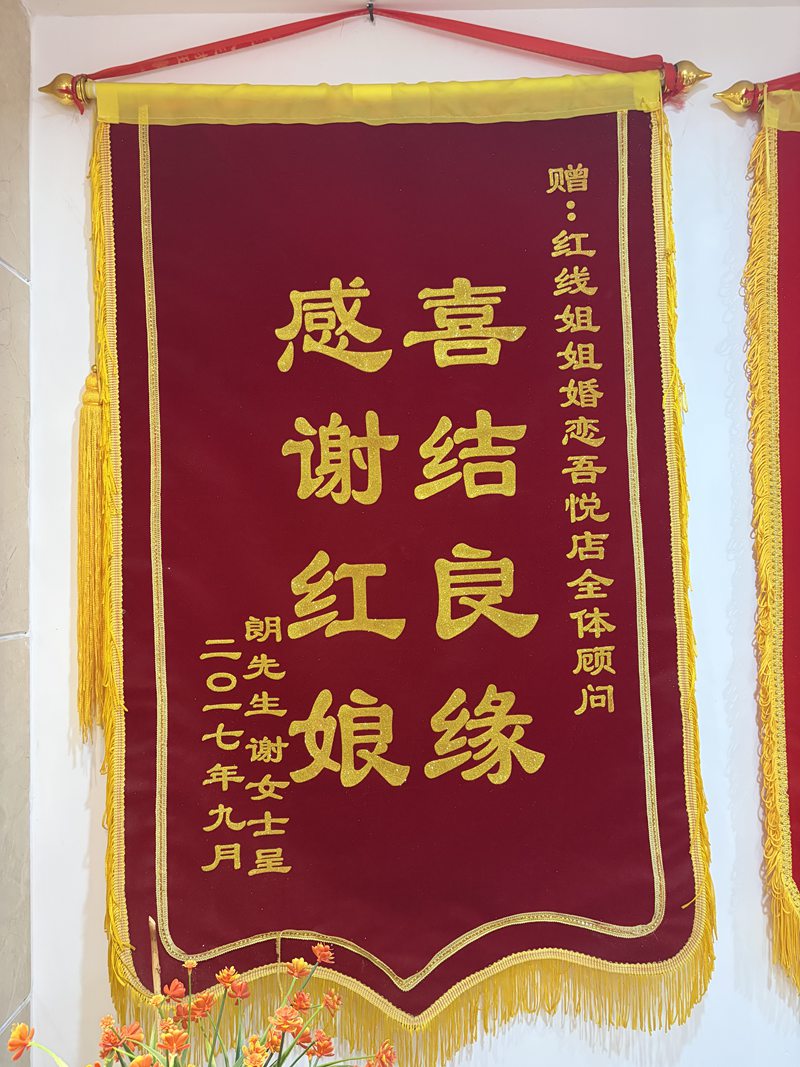 赠：红线姐姐婚恋吾悦店全体顾问
喜结良缘
感谢红娘
朗先生谢女士呈
二〇一七年九月